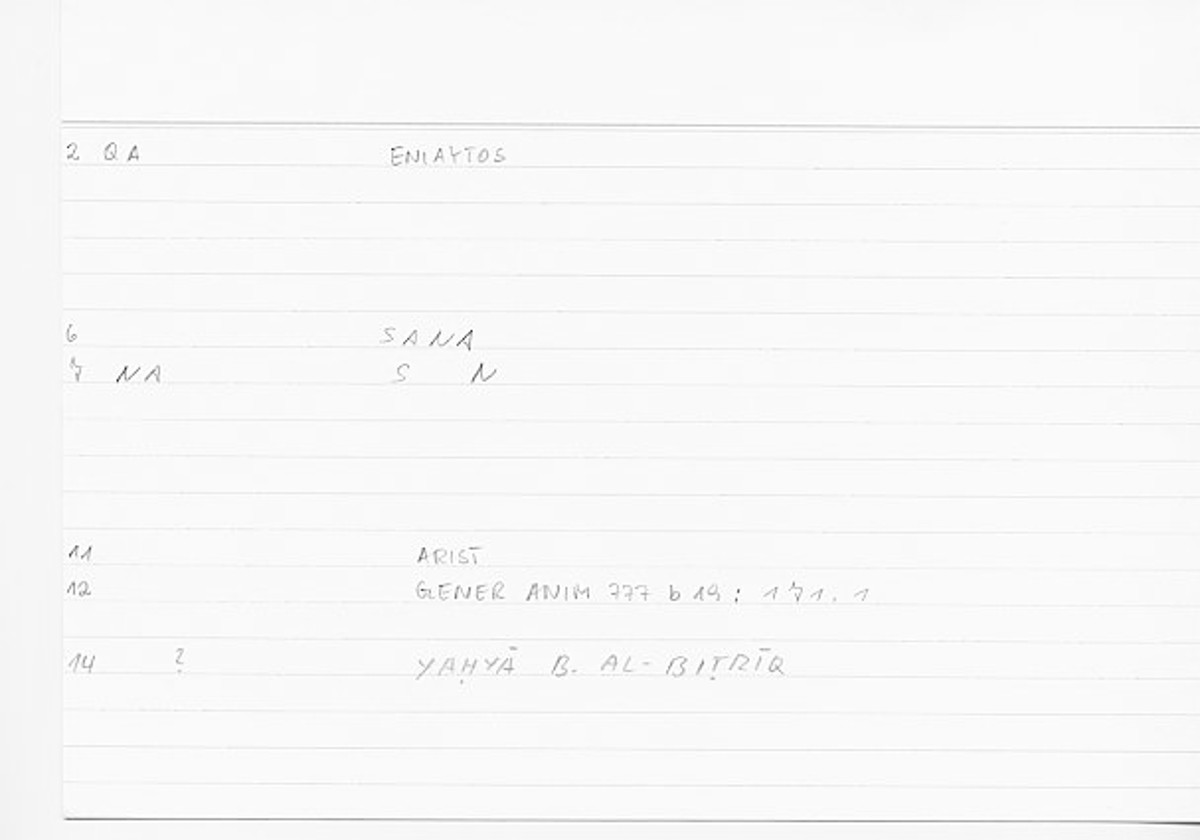 2 QA ENIAYTOS
6 SANA
7 NA S N
11 ARIST
12 GENER ANIM 777 b 19 : 171. 1
14 ? YAḤYĀ B. AL-BIṬRĪQ